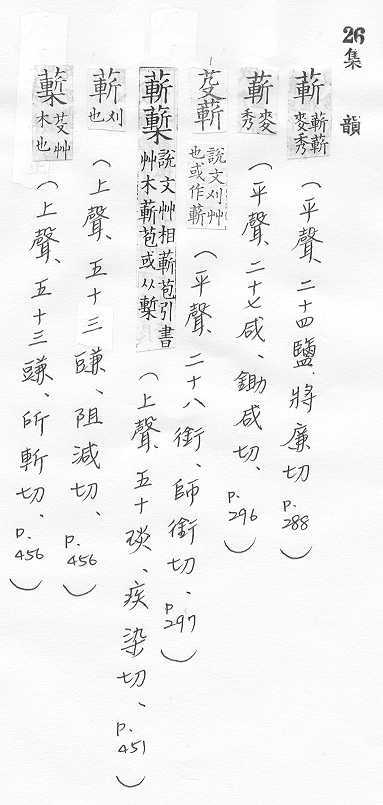 26集 韻
蔪 蔪蔪麥秀 （平聲、二十四鹽、將廉切 p.288）
蔪 麥秀 （平聲、二十七咸、鋤咸切、p.296）
芟蔪 說文刈艸也或作蔪 （平聲、二十八銜、師銜切、p.297）
蔪蔪 說文艸相蔪苞引書艸木蔪苞或从槧 （上聲、五十琰、疾染切、p.451）
蔪 刈也 （上聲、五十三豏、阻減切、p.456）
芟艸木也 （上聲、五十三豏、所斬切、p.456）